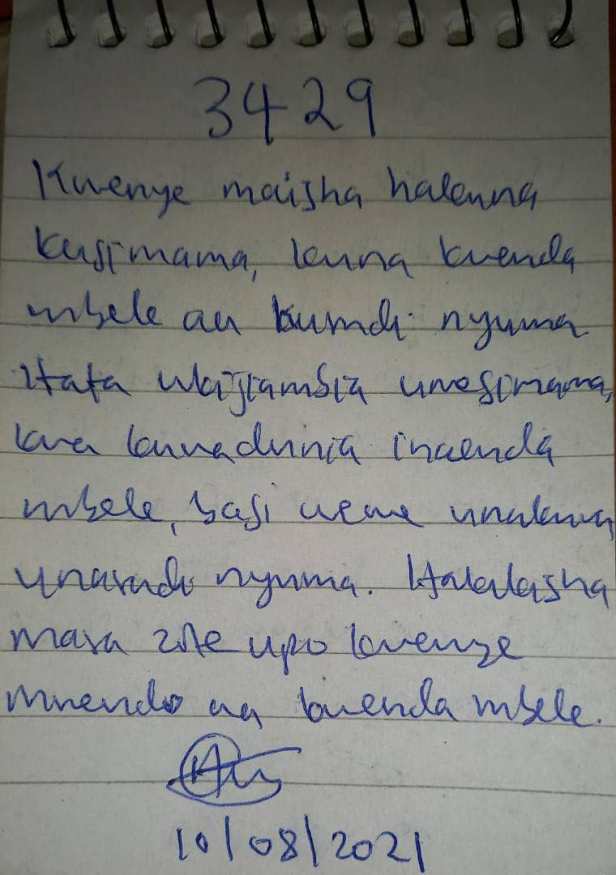 3429
Kwenye maisha hakuna
kusimama, kuna kwenda
mbele au kurudi nyuma.
Hata ukijiambia umesimama,
kwa kuwa dunia inaenda
mbele, basi wewe unakuwa
unarudi nyuma. Hakikisha
mara zote upo kwenye
mwendo wa kwenda mbele.
10/08/2021